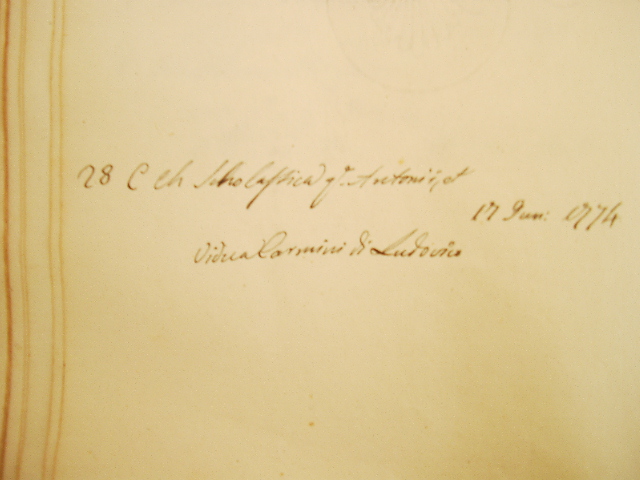 28 C ch Scholastica qm. Antonii, et
17 Jun: 1774
Vidua Carmini di Ludovico